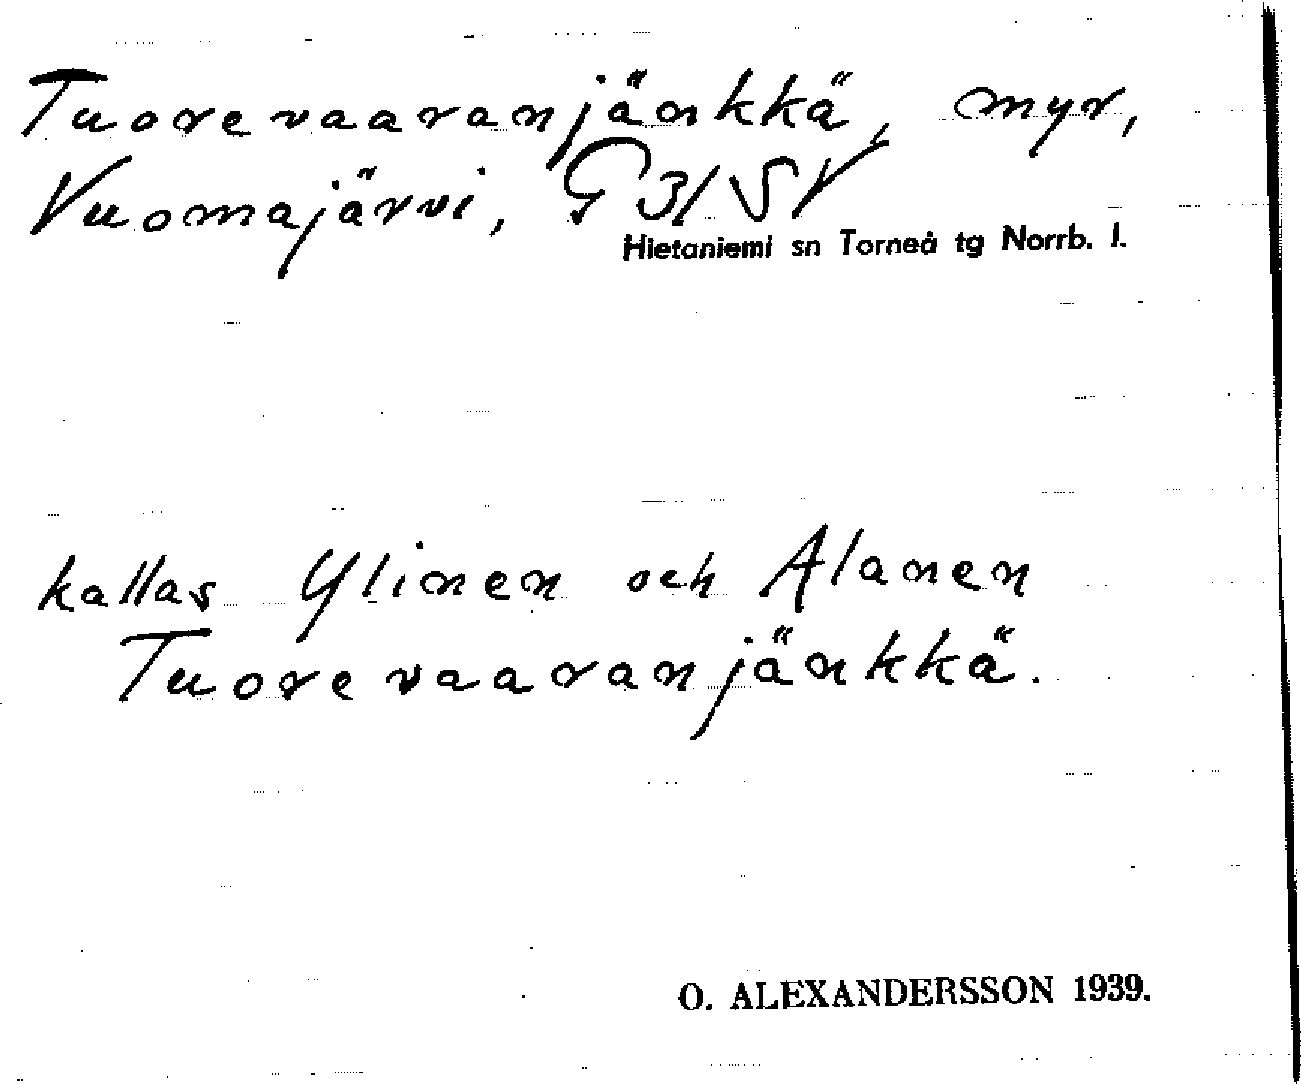 Tuorevaaranjänkkä, myr,
Vuomajärvi, G3/SV
Hietaniemi sn Torneå tg Norrb. l.
kallas Ylinen och Alanen
Tuorevaaranjänkkä.
O. ALEXANDERSSON 1939.